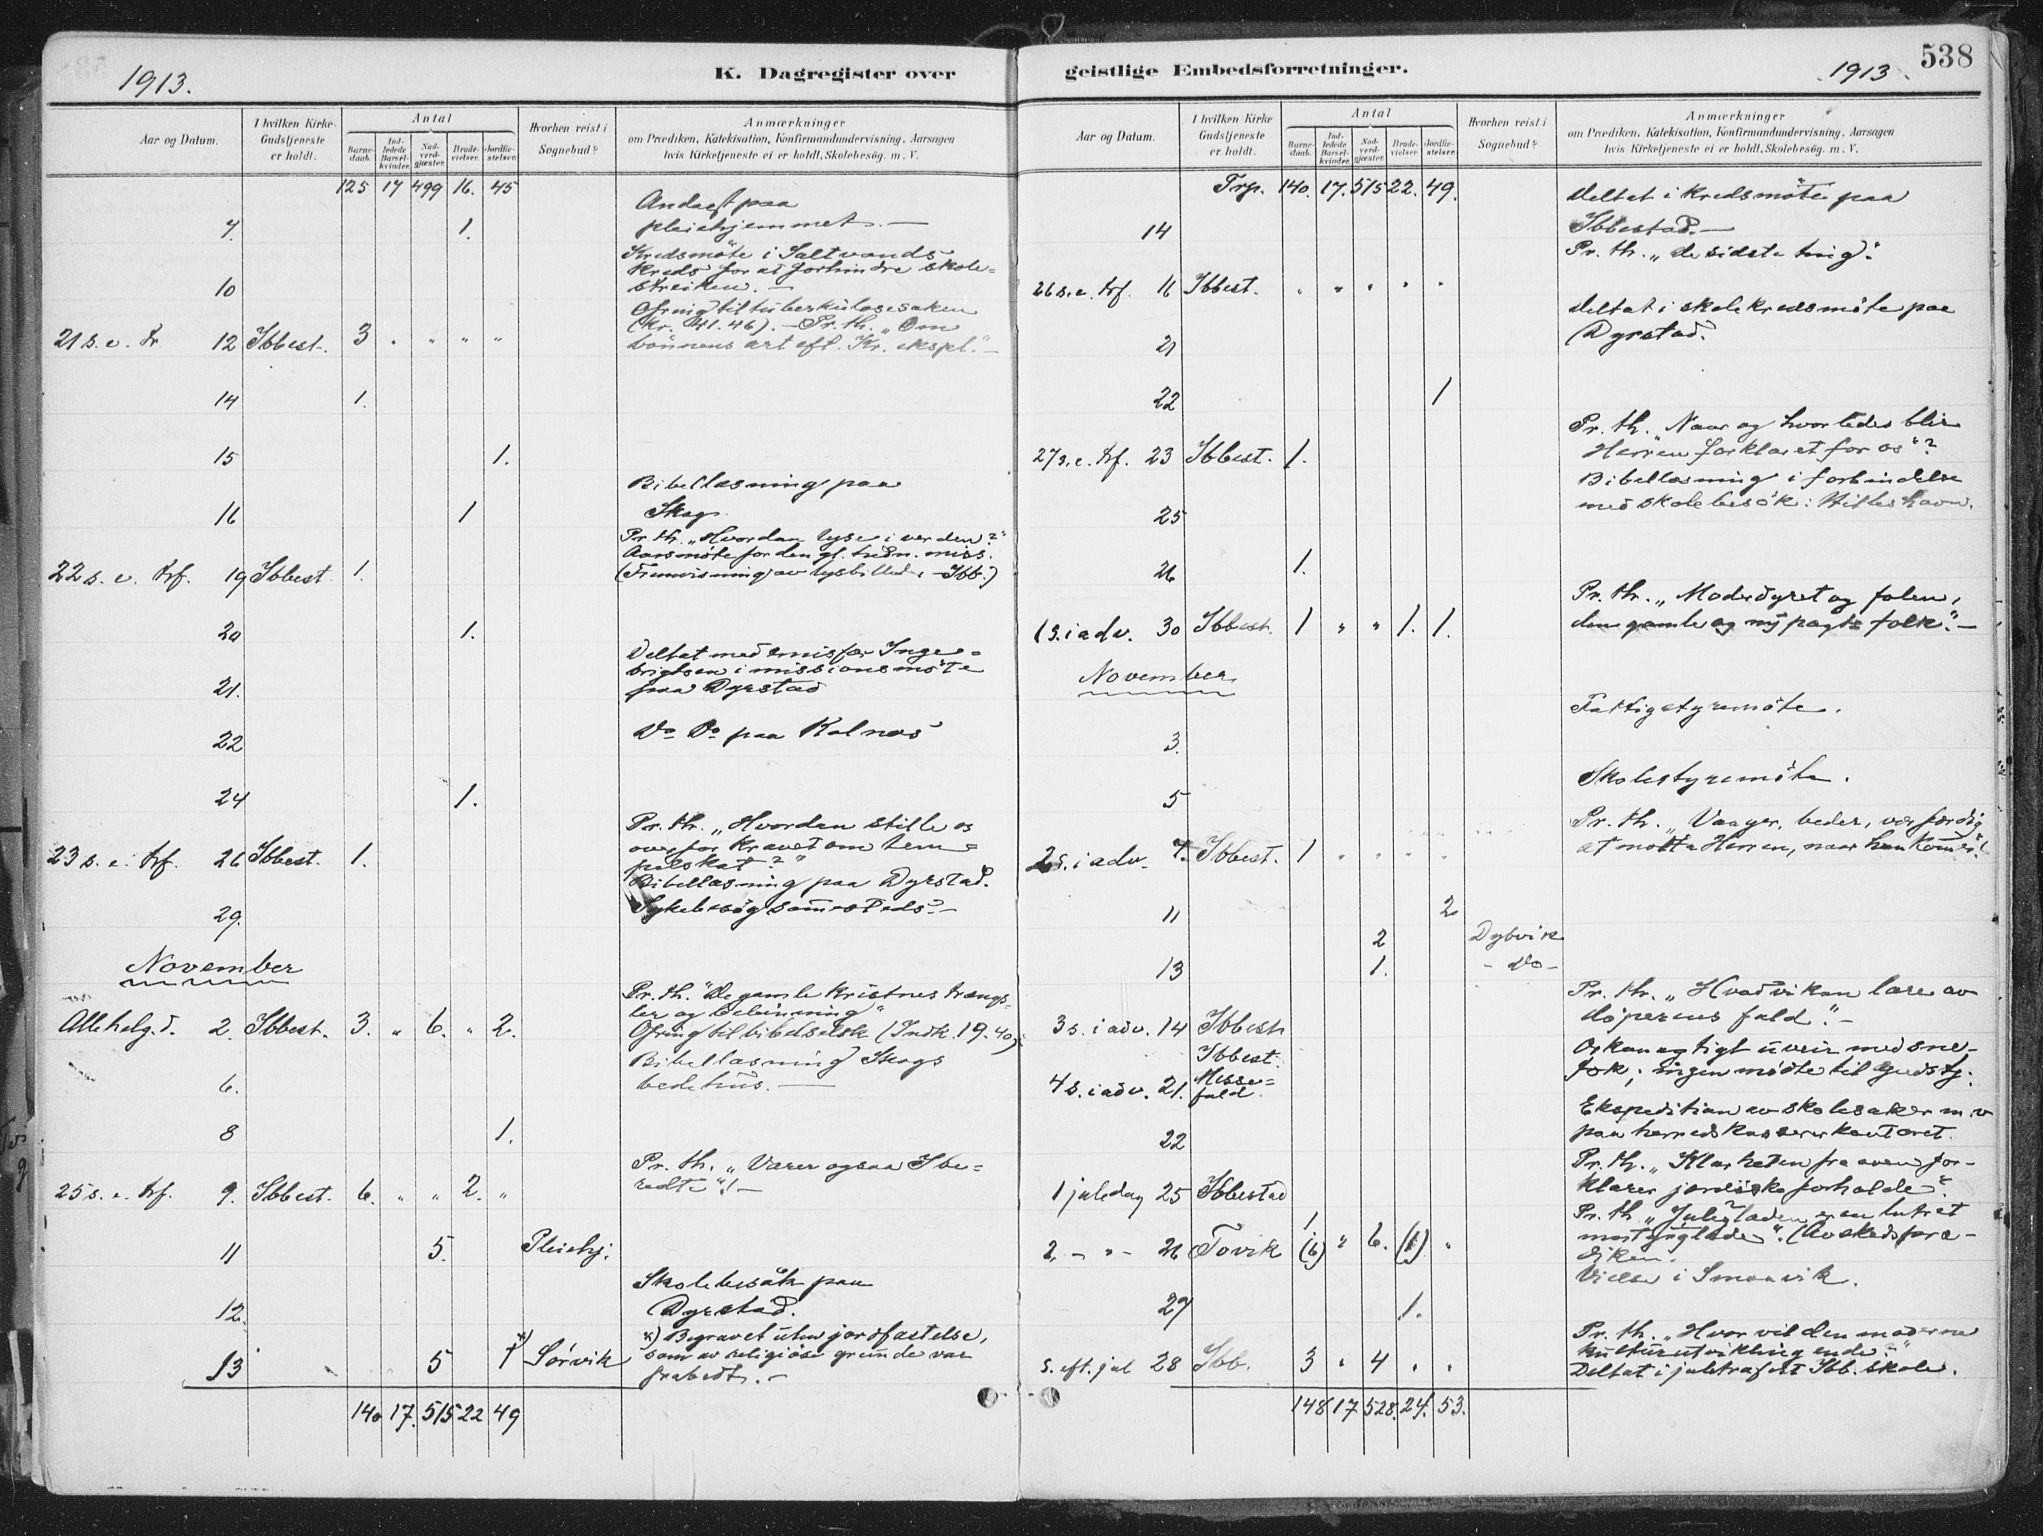 1913.
K. Dagregister over
Aar og Datum.
I hvilken Kirke Gudstjeneste er holdt.
Antal
Barnedaab.
Indledede Barselkvinder.
Nadverdgjæster.
Brudevielser.
Jordfæstelser.
Hvorhen reist i Sognebud?
Anmærkninger
om Prædiken, Katekisation, Konfirmandundervisning, Aarsagen
hvis Kirketjeneste ei er holdt, Skolebesøg. m. V.
125 17 499 16. 45
Andagt paa
7. 1. pleiehjemmet. —
Kredsmöte i Saltvands
kreds for at forhindre skole-
10 streiken. —
Ofring til tuberkulosesaken
(kr. 41.46). — Pr. th. „Om
21 s. e. tr 12 Ibbest. 3 „ „ „ „ bönnens art eft. Kr. ekspl." —
14 1.
15 1.
Bibellæsning paa
16 1 Skog.
Pr. th. „Hvordan lyse i verden?"
Aarsmöte for den gl. indn. miss.
22 s. e. trf. 19 Ibbest 1. (Fremvisning av lysbilled. - Ibb.)
20 1.
Deltat med Inge-
brigtsen i missionsmöte
21. paa Dyrstad
22 Do Do paa Kalnæs
24 1.
Pr. th. „Hvordan stille os
overfor kravet om tem-
23 s. e. trf. 26 Ibbest. 1. pelskat?"
Bibellæsning paa Dyrstad.
29. Sykebesög sammesteds. —
November
Pr. th. "De gamle kristnes trængs-
ler og belönning"
Allehelg.d. 2. Ibbest. 3. „ 6. „ 2. Ofring til bibelselsk (Indk. 19.40).
Bibellæsning Skogs
6. bedehus. —
8 1.
Pr. th. „Værer ogsaa I be-
25 s. e. trf. 9. Ibbest. 6. „ „ 2. „ redte"! —
11 5. Pleiehj.
Skolebesök paa
12. Dyrstad.
*) Begravet uten jordfæstelse,
13 5 1 *) Sørvik som av religiöse grunde var
frabedt. —
140 17. 515 22 49
538
geistlige Embedsforretninger.
1913.
Aar og Datum.
I hvilken Kirke Gudstjeneste er holdt.
Antal
Barnedaab.
Indledede Barselkvinder.
Nadverdgjæster.
Brudevielser.
Jordfæstelser.
Hvorhen reist i Sognebud?
Anmærkninger
om Prædiken, Katekisation, Konfirmandundervisning, Aarsagen
hvis Kirketjeneste ei er holdt, Skolebesøg. m. V.
Trp. 140. 17. 515 22. 49.
Deltat i kredsmöte paa
14 Ibbestad. —
Pr. th. „De sidste ting".
26 s. e. trf. 16 Ibbest. „ „ „ „ „
Deltat i skolekredsmöte paa
21 Dyrstad.
22 1
Pr. th. „Naar og hvorledes blir
27 s. e. trf. 23 Ibbest. 1. Herren forklaret for os"?
Bibellæsning i forbindelse
25 med skolebesök: Hilleshavn.
26 1.
Pr. th. „Moderdyret og folen,
1 s. i adv. 30 Ibbest. 1 „ „ 1. 1. den gamle og ny pagts folk". —
November
3. Fattigstyremöte.
5 Skolestyremöte.
Pr. th. „Vaager, beder, vær færdig
2 s. i adv. 7. Ibbest. 1 „ „ „ „ at motta Herren, naar han kommer"!
11 2
2 Dybvik
13 1. - Do -
Pr. th. „Hvad vi kan lære av
3 s. i adv. 14 Ibbest döperens fald". —
Ibbest. Orkanagtigt uveir med sne-
4 s. i adv. 21. Messe- fok; ingen mödte til Gudstj.
fald.
Ekspedition av skolesaker m.v
22 paa herredskassererkontoret.
Pr. th. „Klarheten fra oven for-
1 juledag 25 Ibbestad klarer jordiske forholde".
Pr. th „Juleglæden er en lutret
1
2. - „ - 26 Tovik (6) „ 6. (1) „ (Avskedspræ-
diken.
29 1. Vielse i Smaavik.
Pr. th. „Hvor vil den moderne
S. eft. jul 28 Ibb. 3 „ 4 „ „ kulturutvikling ende."
Deltat i juletræfest Ibb. skole.
148 17 528. 24. 53.